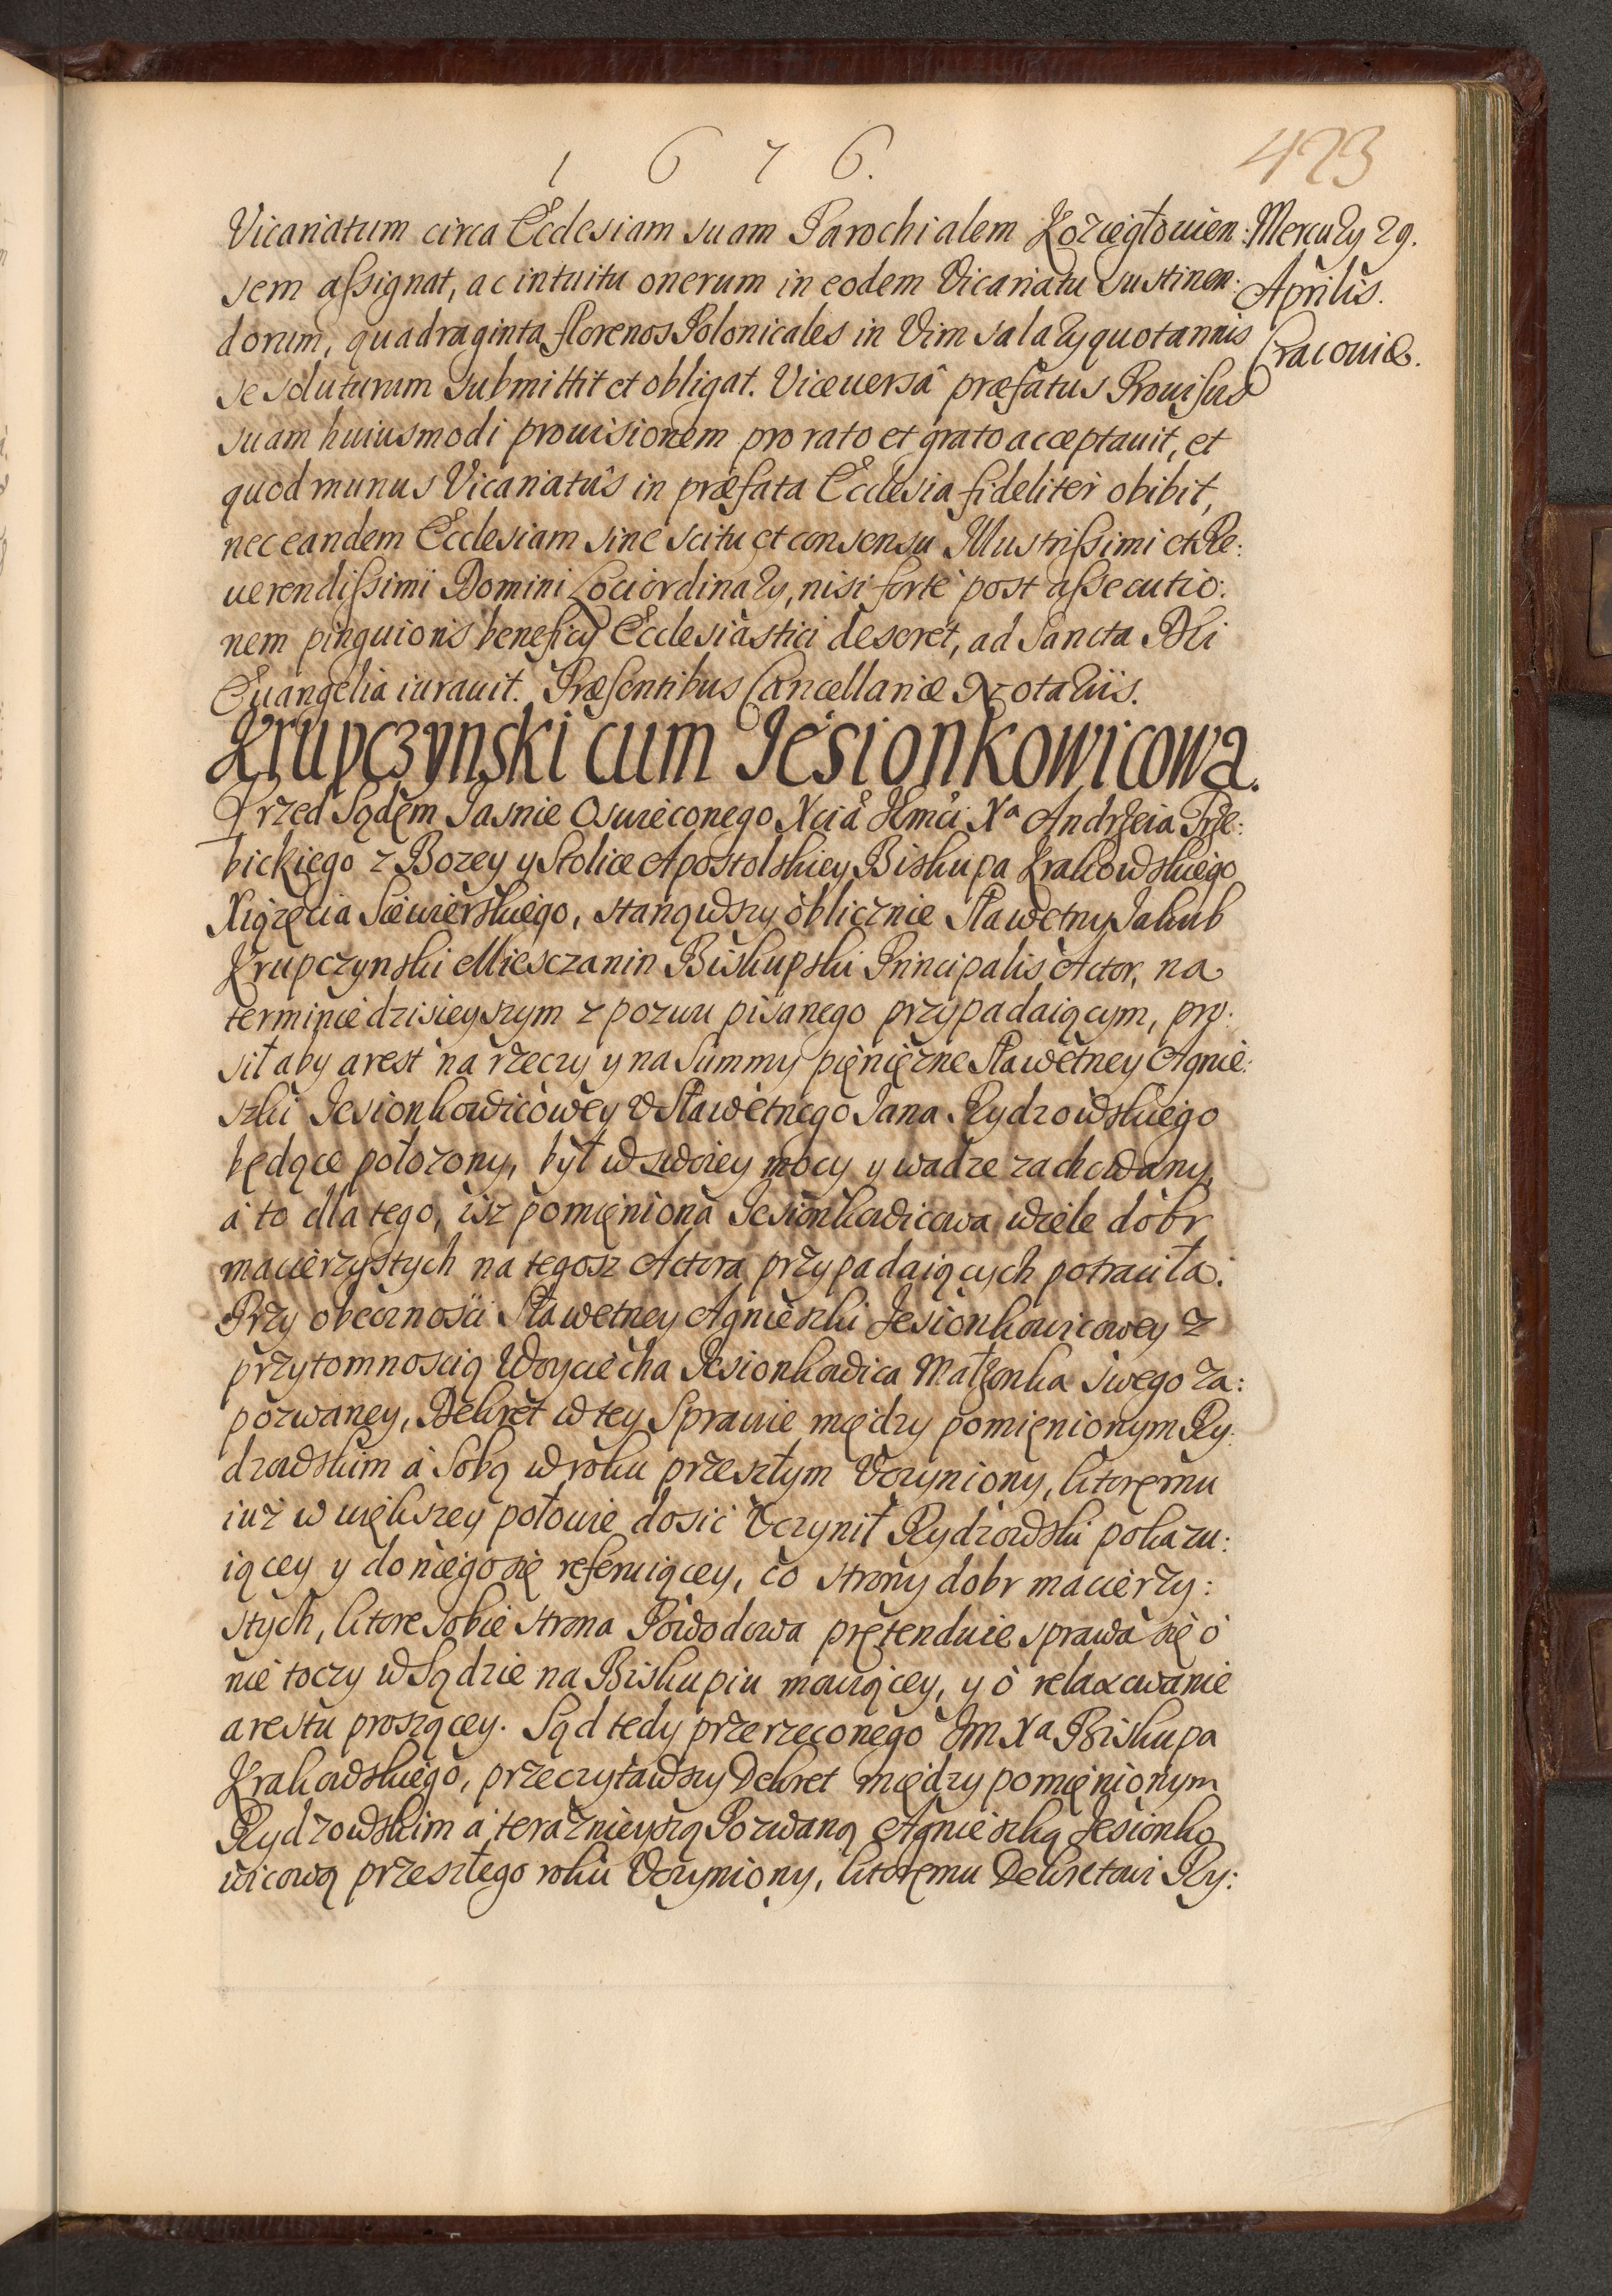 1 6 7 6.
423
Vicariatum circa Ecclesiam suam Parochialem Koziegłowien:
Mercurÿ 29.
sem assignat, ac intuitu onerum in eodem Vicariatu sustinen:
Aprilis.
dorum, quadraginta florenos Polonicales in Vim salarÿ quotannis
Cracouiæ.
se soluturum submittit et obligat. Viceuersâ præfatus Prouisus
suam huiusmodi prouisionem pro rato et grato acceptauit, et
quod munus Vicariatûs in præfata Ecclesia fideliter obibit,
nec eandem Ecclesiam sine scitu et consensu Illustrissimi et Re:
uerendissimi Domini Lociordinarÿ, nisi forte post assecutio:
nem pinguioris beneficÿ Ecclesiastici deseret, ad Sancta DEi
Euangelia iurauit. Præsentibus Cancellariæ Notarÿs.
Krupczynski cum Jesionkowicowa.
Przed Sądem Jasnie Oswieconego Xcia Jmci Xa Andrzeia Trze:
bickiego z Bozey y Stolice Apostolskiey Biskupa Krakowskiego
Xiązęcia Siewierskiego, stanąwszy oblicznie Sławetny Jakub
Krupczynski Miesczanin Biskupski Principalis Actor, na
terminie dzisieyszym z pozwu pisanego przypadaiącym, pro:
sił aby arest na rzeczy y na Summy pięnięzne Sławetney Agnie:
szki Jesionkowicowey V Sławetnego Jana Rydzowskiego
będące połozony, był w swoiey mocy y wadze zachowany,
a to dla tego, isz pomięniona Jesionkowicowa wiele dobr
macierzystych na tegosz Actora przypadaiących potraciła.
Przy obecznosci Sławetney Agnieszki Jesionkowicowey z
przytomnoscią Woyciecha Jesionkowica Małzonka swego za:
pozwaney, Dekret w tey Sprawie między pomięnionym Ry:
dzowskim a Sobą w roku przeszłym Vczyniony, ktoręmu
iuż w większey połowie dosic Vczynił Rydzowski pokazu:
iącey y do niego się referuiącey, co strony dobr macierzy:
stych, ktore sobie strona Powodowa prętenduie sprawa się o
nie toczy w Sądzie na Biskupiu mowiącey, y o relaxowanie
arestu proszącey. Sąd tedy przerzeconego Jm Xa Biskupa
Krakowskiego, przeczytawszy Dekret między pomięnionym
Rydzowskim a teraznieyszą Pozwaną Agnieszką Jesionko
wicową przeszłego roku Vczyniony, ktoręmu Dekretowi Ry: